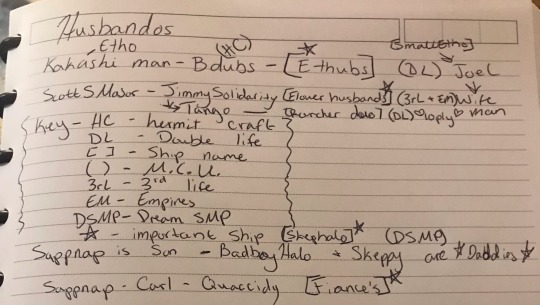 Husbandos
Etho (HC) ☆ [Smalletho]
Kakashi man - Bdubs - [E-thubs] (DL) Joel
Scott SMajor - Jimmy Solidarity [Flower husbands]☆ (3rL + Em) Wife
↳ Tango [Rancher duo] (DL) ♡ loply ♡ man
Key - HC - hermit craft
DL - Double life
[ ] - Ship name
( ) - M.C.U.
3rL - 3rd life
EM - Empires
DSMP - Dream SMP
☆ - important ship [Skephalo]☆ (DSMP)
Sappnap is Son - Badboy Halo + Skeppy are ☆Daddies☆
Sappnap - Carl - Quaccidy [Fiance's]☆